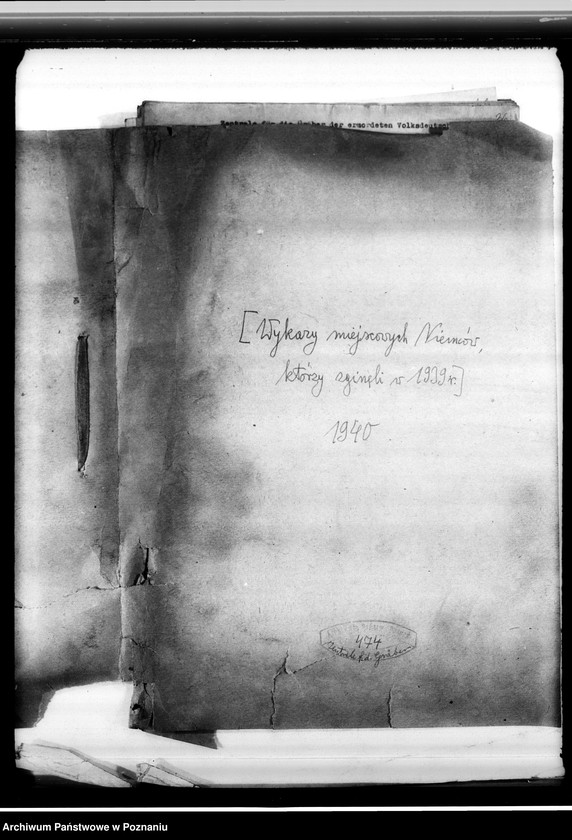 Zentrale für die Gräber der ermordeten Volksdeutsch
[Wykazy miejscowych Niemców,
którzy zginęli w 1939 r.]
1940
474
Zentrale f.d. Gräber
Archiwum Państwowe w Poznaniu